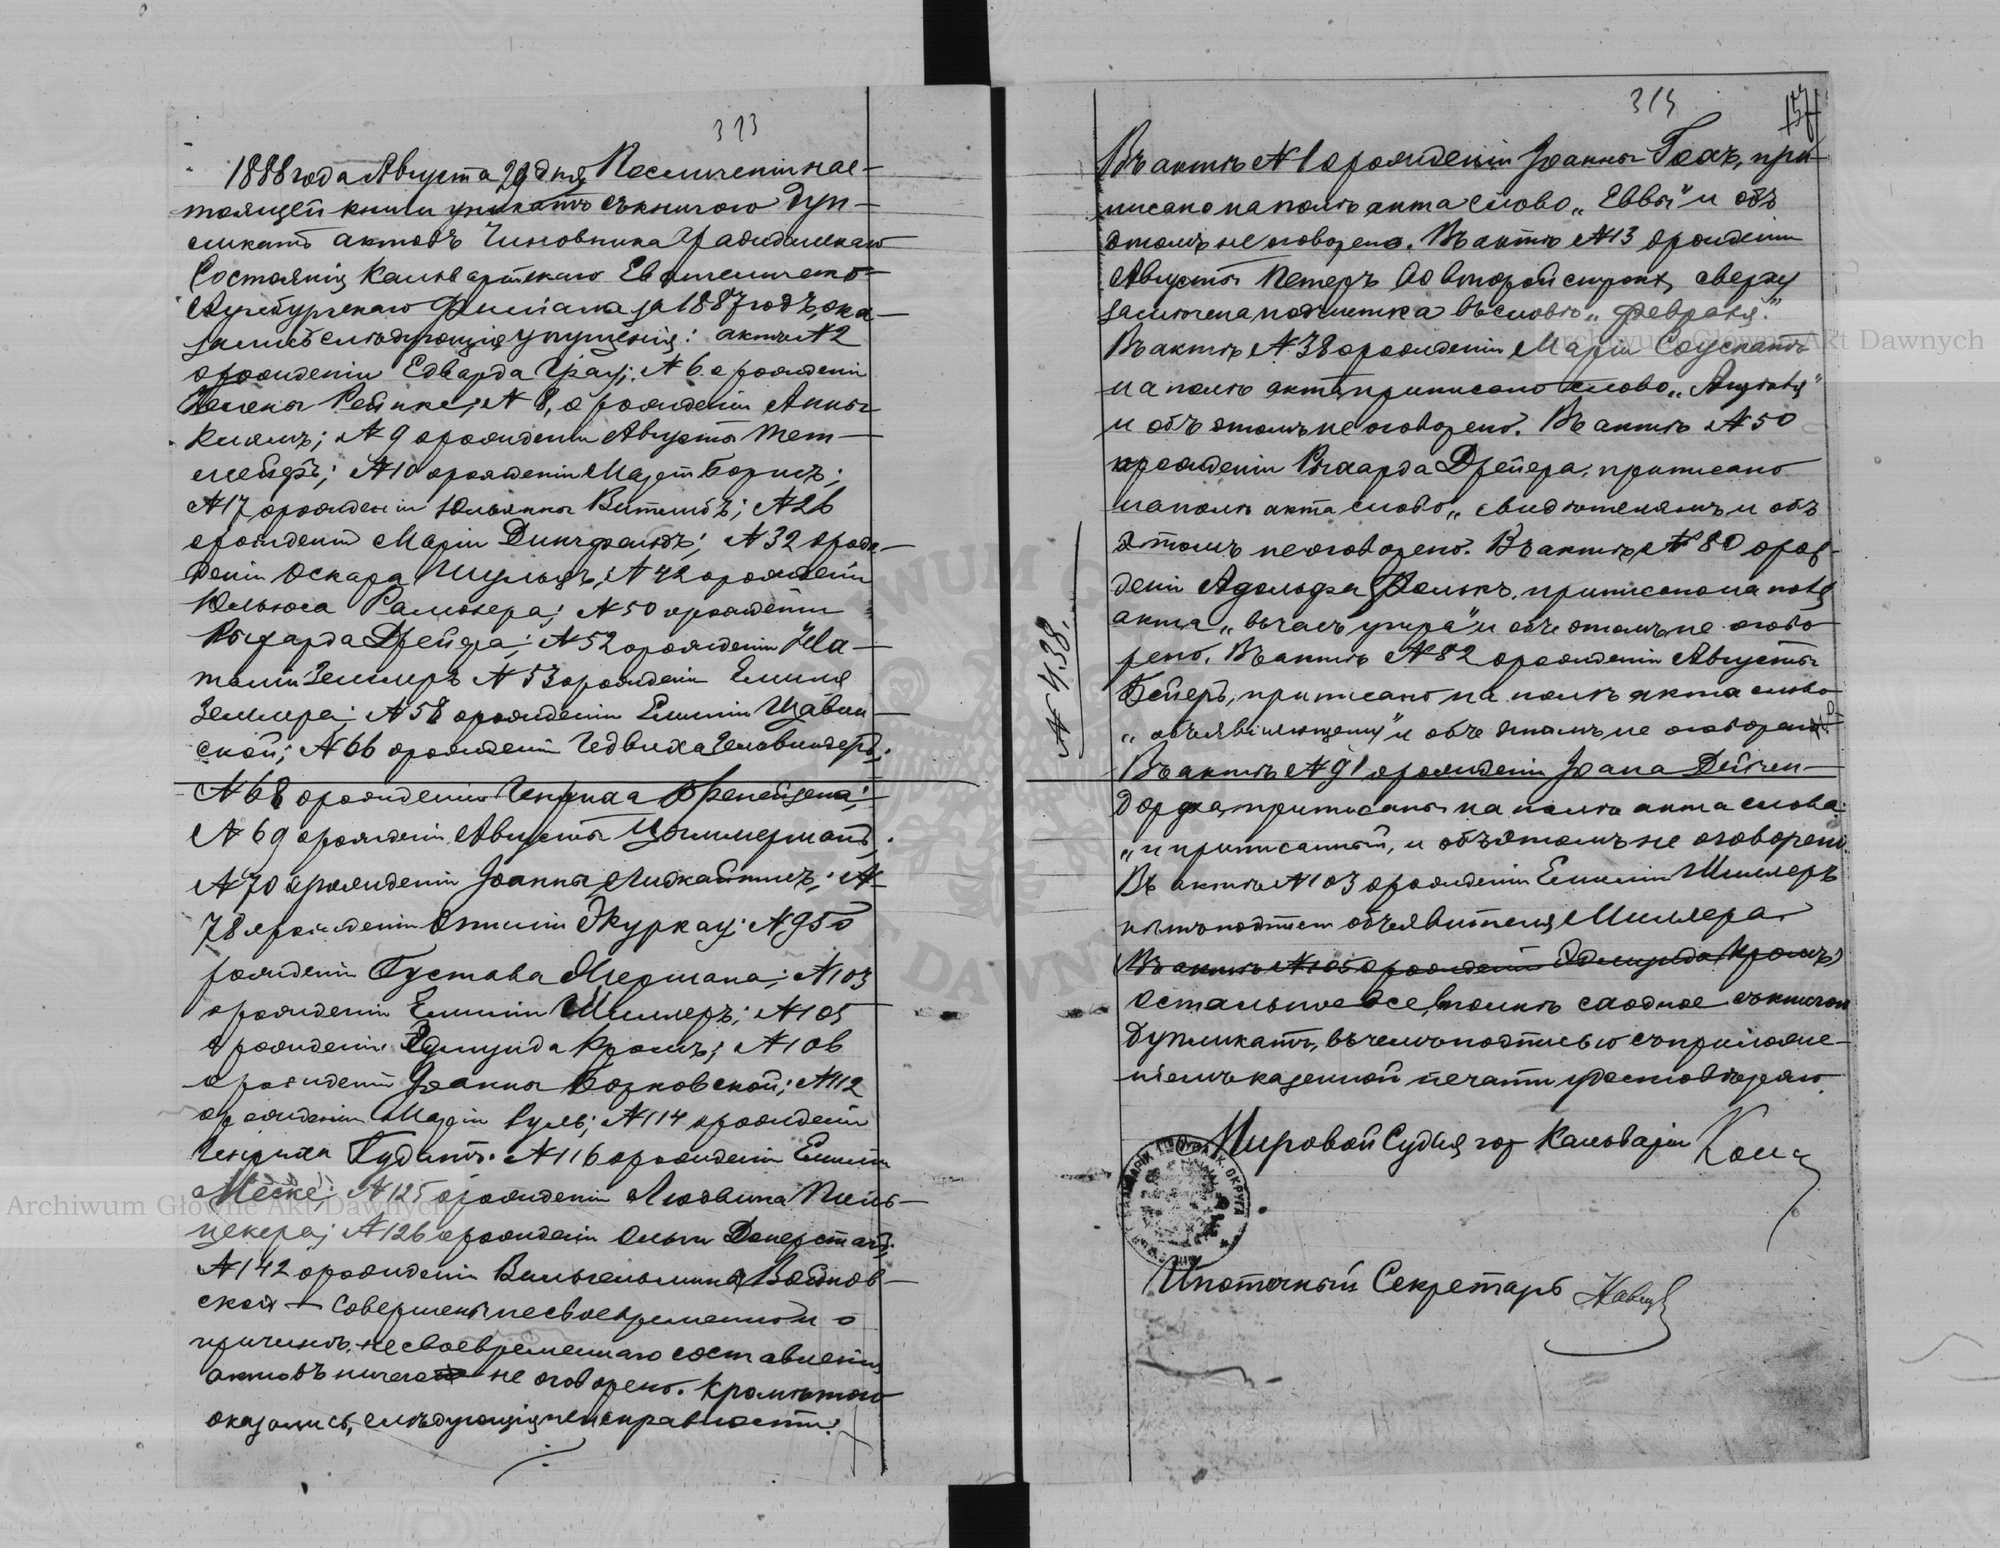 313
1888 года Августа 29 дня, По сличеніи нас-
тоящей книги уникатъ съ книгою дуп-
ликатъ актовъ Чиновника Гражданскаго
Состоянія Кальварійскаго Евангелическо-
Аугсбургскаго Филіала за 1887 годъ, ока-
зались слѣдующія упущенія: актъ № 2
о рожденіи Едварда Грау; № 6 о рожденіи
Елены Рейнке; № 8, о рожденіи Анны
Кламъ; № 9 о рожденіи Августы Тет-
мейеръ; № 10 о рожденіи Мазет Борисъ;
№ 17 о рожденіи Юльянны Витлибъ; № 26
о рожденіи Маріи Динчфельдъ; № 32 о рож-
деніи Оскара Шульцъ; № 42 о рожденіи
Юльюса Рамонера; № 50 о рожденіи
Рыхарда Дрейера; № 52 о рожденіи На-
таліи Землеръ № 53 о рожденіи Емиля
Земмера; № 58 о рожденіи Емиліи Щавин-
ской; № 66 о рожденіи Гедвиха
№ 68 о рожденіи Генриха Френейзена;
№ 69 о рожденіи Августы Циммерманъ;
№ 70 о рожденіи Іоанны Лидкайтисъ; №
78 о рожденіи Отиліи Экуркау; № 95 о
рожденіи Густава Акермана; № 103
о рожденіи Емиліи Шиллеръ; № 105
о рожденіи Эдмунда Кромъ; № 106
о рожденіи Іоанны Борковской; № 112
о рожденіи Маріи Руль; № 114 о рожденіи
Генриха Гудатъ. № 116 о рожденіи Емиліи
Меске; № 125 о рожденіи Людвига Пель-
цекера; № 126 о рожденіи Ольги Донерштагъ;
№ 142 о рожденіи Вильгельмина Войнов-
ской — совершены несвоевременно и о
причинѣ несвоевременнаго составленія
актовъ ничего не оговорено. Кромѣ того
оказались, слѣдующія неисправности:
315
157
Въ актѣ № 1 о рожденіи Іоанны Гохъ, при-
писано на полѣ акта слово „Еввы" и объ
этомъ не оговорено. Въ актѣ № 13 о рожденіи
Августы Петеръ во второй строкѣ, сверху
залючена подчистка въ словѣ „Февраля".
Въ актѣ № 38 о рожденіи Маріи Соускатъ
на полѣ акта приписано слово
и объ этомъ не оговорено. Въ актѣ № 50
о рожденіи Рыхарда Дрейера, приписано
на полѣ акта слово „свидѣтелямъ и объ
этомъ не оговорено. Въ актѣ № 80 о рож-
деніи Адольфа Фолькъ, приписано на полѣ
акта „въ часъ утра" и объ этомъ не огово-
рено. Въ актѣ № 82 о рожденіи Августы
Бейеръ, приписано на полѣ акта слово
„объявляющему" и объ этомъ не оговорено.
Въ актѣ № 91 о рожденіи Іоана Дейчен-
дорфа, приписаны на полѣ акта слова:
„и приписанный, и объ этомъ не оговорено.
Въ актѣ № 103 о рожденіи Емиліи Шиллеръ
нѣтъ подписи объявителя Миллера.
Въ актѣ № 105 о рожденіи Эдмунда Кромъ,
Остальное все вполнѣ сходное съ книгою
дупликатъ, въ чемъ подписью съ приложе-
ніемъ казенной печати удостовѣряю.
Мировой Судья гор Кальваріи
Ипотечный Секретарь
№ 438.
Archiwum Główne Akt Dawnych
Archiwum Główne Akt Dawnych